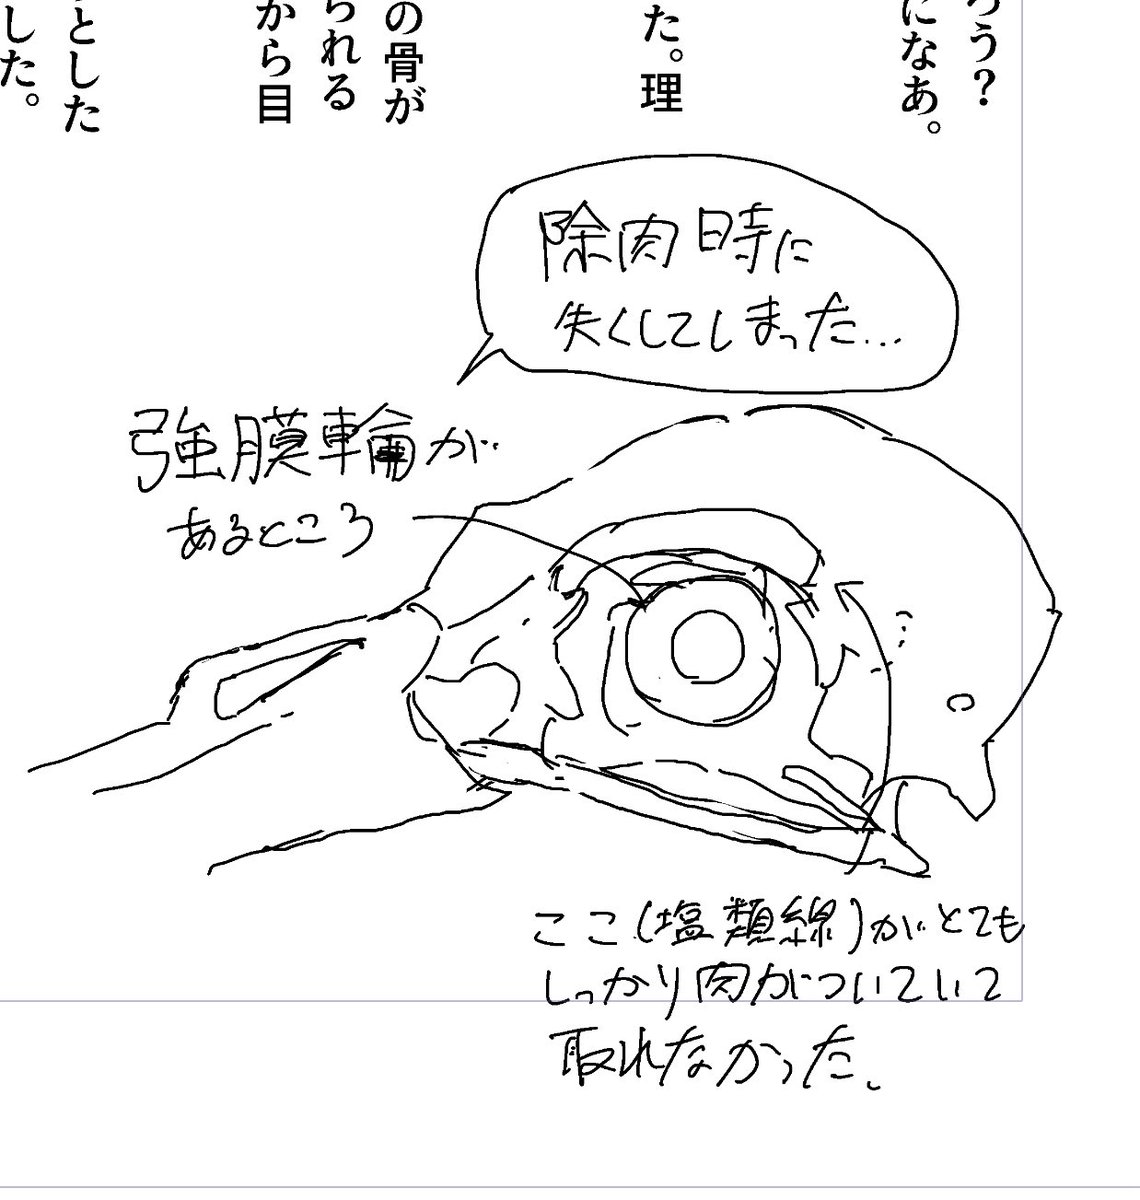 ろう？
になあ。
た。理
の骨が
られる
から目
とした
した。
除肉時に
失くしてしまった…
強膜輪が
あるところ
ここ(塩類線)がとても
しっかり肉がついていて
取れなかった。